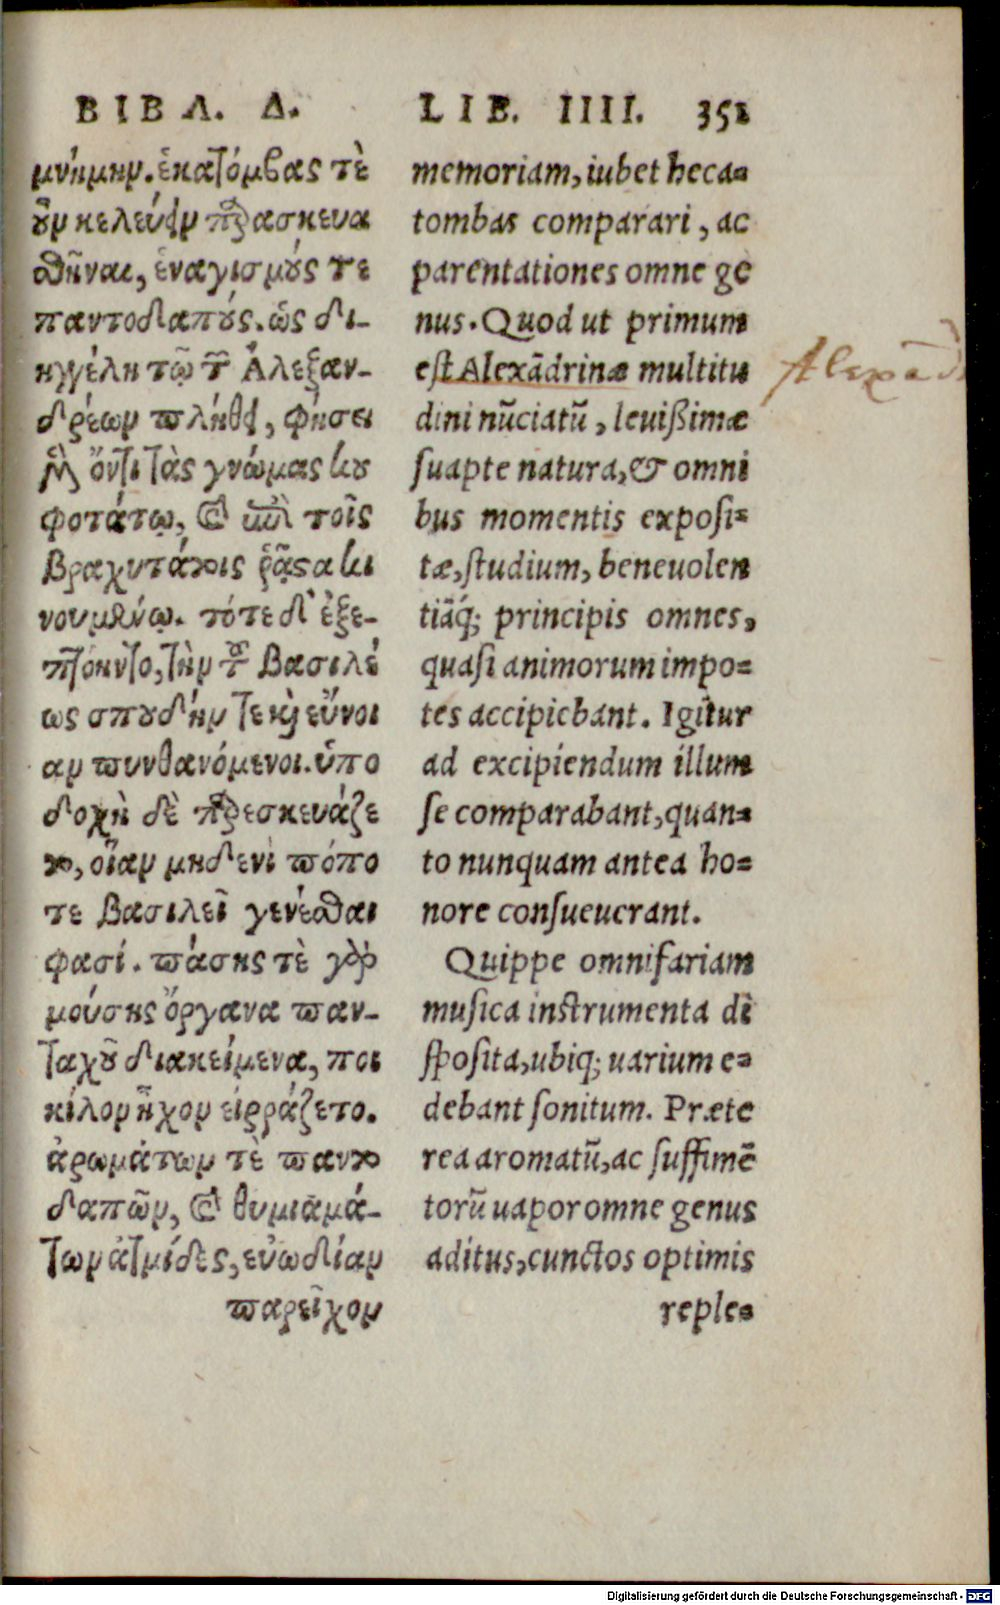 ΒΙΒΛ. Δ.
μνήμην. ἑκατόμβας τὲ
οὖν κελεύει παρασκευα
σθῆναι, ἐναγισμούς τε
παντοδαπούς. ὡς δι-
ηγγέλη τῷ τῶν Ἀλεξαν-
δρέων πλήθει, φύσει
μὲν ὄντι τὰς γνώμας κου
φοτάτῳ, καὶ ἐπὶ τοῖς
βραχυτάτοις ῥᾷστα κι
νουμένῳ. τότε δ' ἐξε-
πτόηντο, τὴν τοῦ βασιλέ
ως σπουδήν τε καὶ εὔνοι
αν πυνθανόμενοι. ὑπο
δοχὴ δὲ παρεσκευάζε
το, οἵαν μηδενὶ πόπο
τε βασιλεῖ γενέσθαι
φασί. πάσης τὲ γὰρ
μούσης ὄργανα παν-
ταχοῦ διακείμενα, ποι
κίλον ἦχον εἰργάζετο.
ἀρωμάτων τὲ παντο
δαπῶν, καὶ θυμιαμά-
των ἀτμίδες, εὐωδίαν
παρεῖχον
LIB. IIII. 351
memoriam, iubet heca=
tombas comparari, ac
parentationes omne ge
nus. Quod ut primum
est Alexādrinæ multitu
dini nūciatū, leuißimæ
suapte natura, & omni
bus momentis exposi=
tæ, studium, beneuolen
tiāq́; principis omnes,
quasi animorum impo=
tes accipiebant. Igitur
ad excipiendum illum
se comparabant, quan=
to nunquam antea ho=
nore consueuerant.
Quippe omnifariam
musica instrumenta di
sposita, ubiq; uarium e=
debant sonitum. Præte
rea aromatū, ac suffimē
torū uapor omne genus
aditus, cunctos optimis
reple=
Alexād
Digitalisierung gefördert durch die Deutsche Forschungsgemeinschaft - DFG